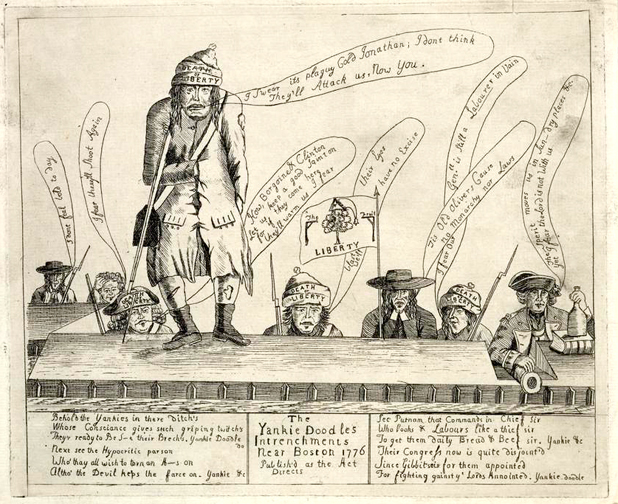 DEATH
or
LIBERTY
I Swear its plaguy Cold Jonathan; I dont think
They'll Attack us, Now You.
I dont feel bold to day
I fear they'll Shoot Again
Borgoine & Clinton
they come here
they'll warm us I fear
their Eyes
have no Excise
Gen.l is Still a Labourer in Vain
Tis Old Olivers Cause
No Monarchy nor Laws
The Spirit moves us in Sun. dry places &c
Yet I fear the lord is not with us
The
LIBERTY
DEATH
or
LIBERTY
DEATH
or
LIBERTY
Behold the Yankies in there ditch's
Whose Consciance gives such griping twitch's
They'r ready to Be S—t their Brech's. Yankie Doodle
do
Next see the Hypocritic parson
Who thay all wish to turn an A—s on
Altho' the Devil keps the farce on. Yankie &c
The
Yankie Doodles
Intrenchments
Near Boston 1776
Publish'd as the Act
Directs
See Putnam that Commands in Chief Sir
Who looks & Labours like a thief sir
To get them daily Bread & Beef sir. Yankie &c
Their Congress now is quite disjointd
Since Gibbits is for them appointed
For fighting gainst ye Lords Annointed. Yankie doodle